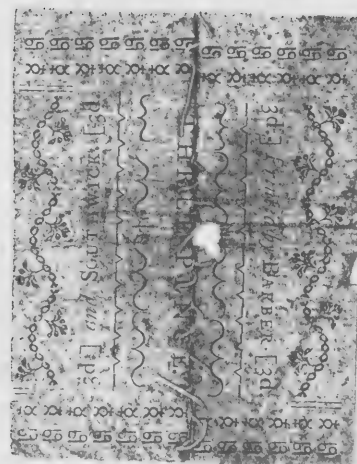 3d.] Printed by BARBER [3d.
THREE PENCE
3d.] and SOUTHWICK [3d.